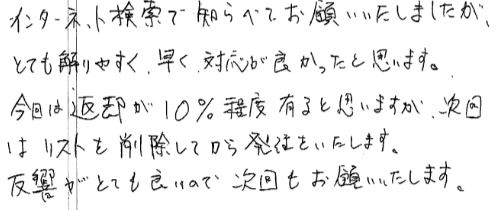 インターネット検索で知らべてお願いいたしましたが、
とても解りやすく、早く、対応が良かったと思います。
今回は返却が10%程度有ると思いますが、次回
はリストを削除してから発注をいたします。
反響がとても良いので次回もお願いいたします。